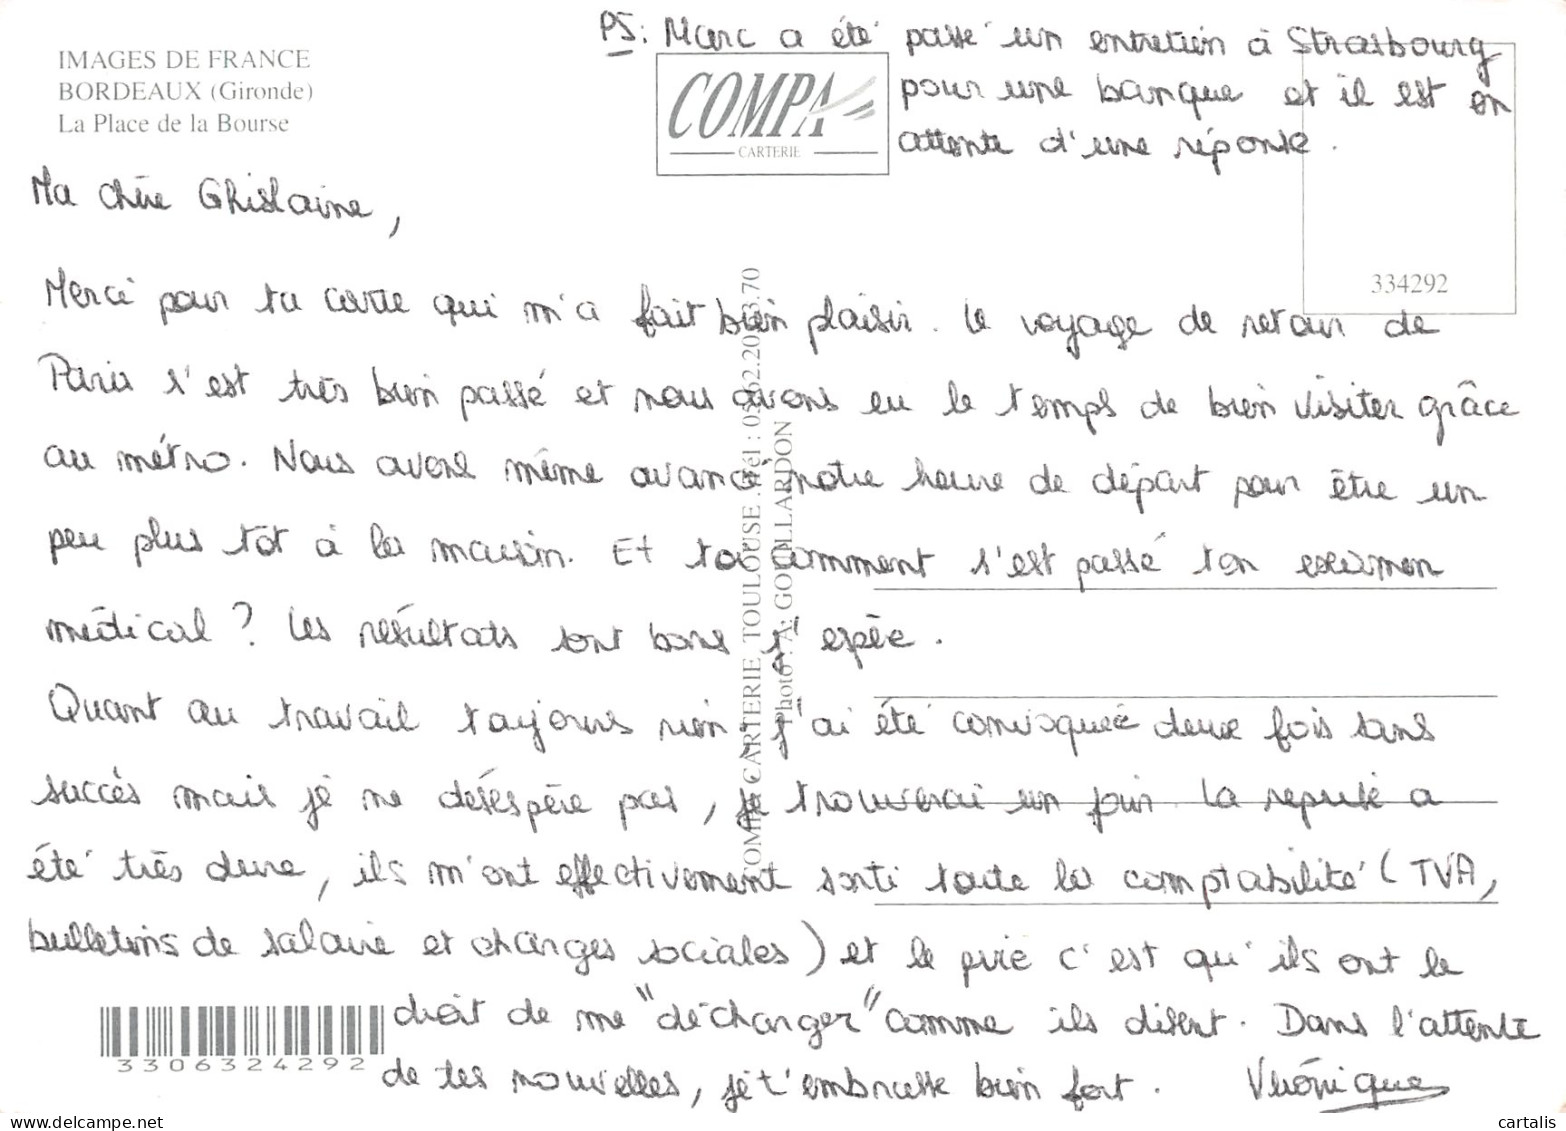 IMAGES DE FRANCE
BORDEAUX (Gironde)
La Place de la Bourse
PS: Marc a été passé un entretien à Strasbourg
pour une banque et il est en
attente d'une réponse.
COMPA
CARTERIE
334292
Ma chère Ghislaine,
Merci pour ta carte qui m'a fait bien plaisir. Le voyage de retour de
Paris s'est très bien passé et nous avons eu le temps de bien visiter grâce
au métro. Nous avons même avancé notre heure de départ pour être un
peu plus tôt à la maison. Et toi comment s'est passé ton examen
médical ? Les résultats sont bons j'espère.
Quant au travail toujours rien, j'ai été convoquée deux fois sans
succès mais je ne désespère pas, je trouverai un jour. La repute a
été très dure, ils m'ont effectivement sorti toute la comptabilité (TVA,
bulletins de salaire et charges sociales) et le pire c'est qu'ils ont le
droit de me "décharger" comme ils disent. Dans l'attente
de tes nouvelles, je t'embrasse bien fort. Véronique
3306324292
COMPA CARTERIE TOULOUSE. Tél : 05.62.20.70
Photo : A. GOUILLARDON